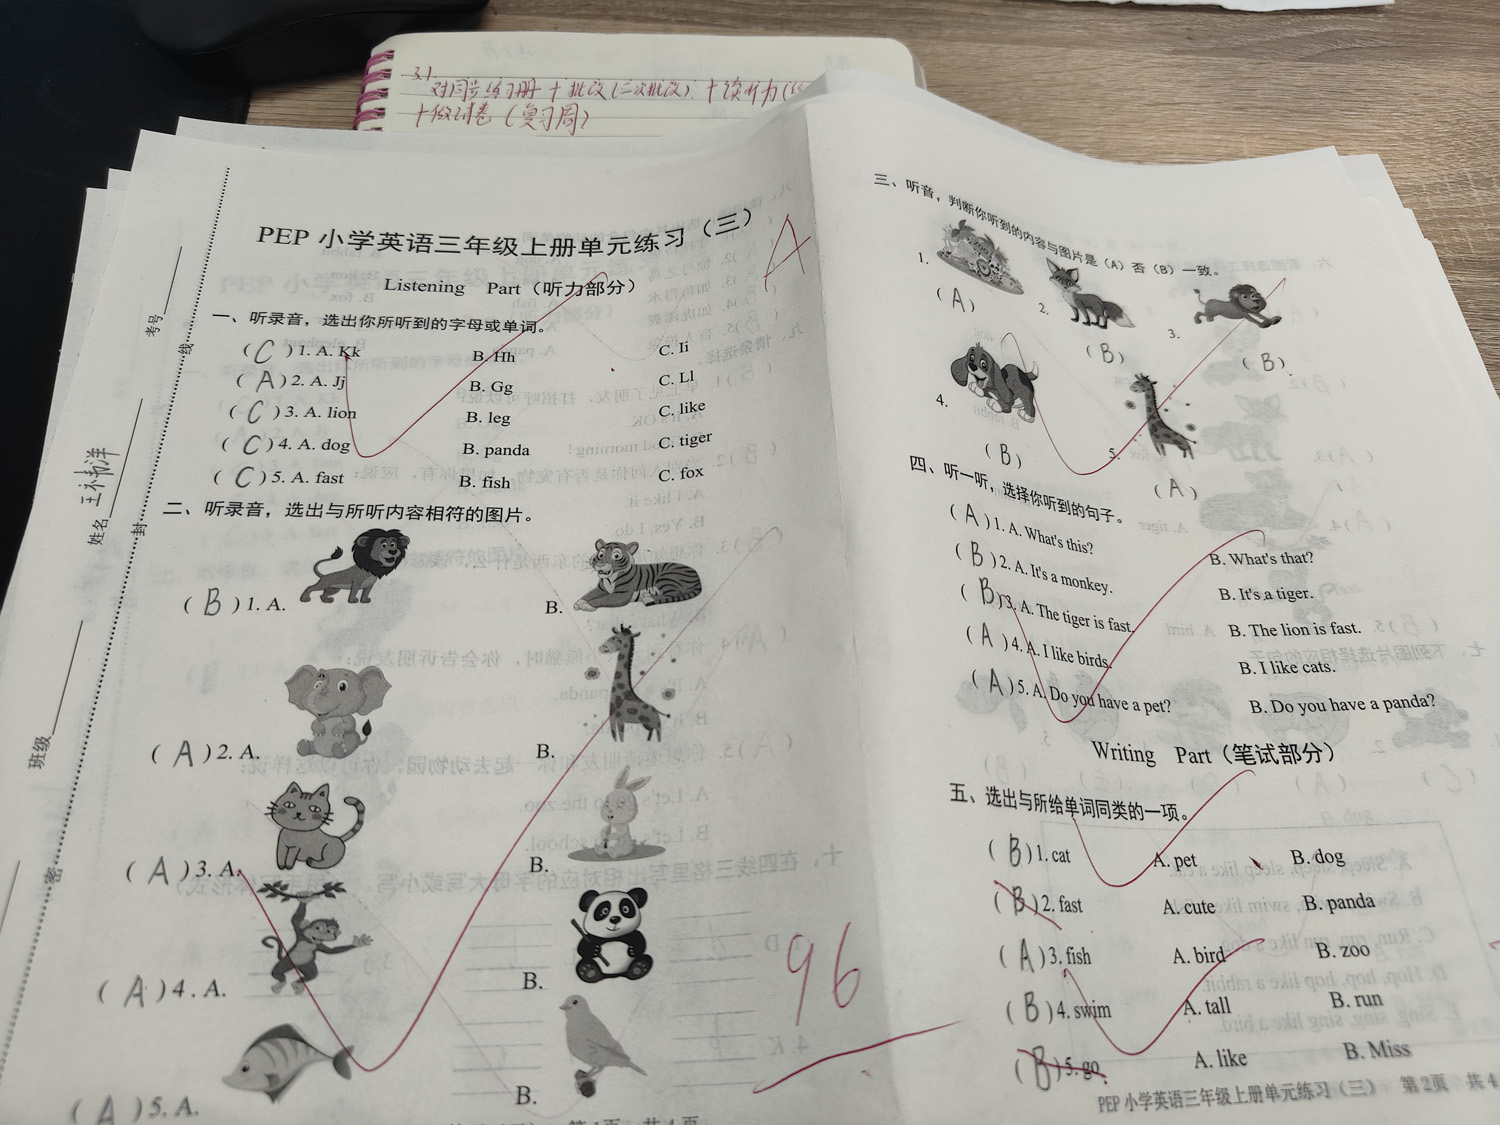 3.1.
对同步练习册 + 批改(二次批改). + 读听力
+ 做试卷 (复习周)
考号
姓名
班级
线
封
密
PEP 小学英语三年级上册单元练习（三）
A
Listening Part（听力部分）
一、听录音，选出你所听到的字母或单词。
( C ) 1. A. Kk B. Hh C. Ii
( A ) 2. A. Jj B. Gg C. Ll
( C ) 3. A. lion B. leg C. like
( C ) 4. A. dog B. panda C. tiger
( C ) 5. A. fast B. fish C. fox
二、听录音，选出与所听内容相符的图片。
( B ) 1. A. B.
( A ) 2. A. B.
( A ) 3. A. B.
( A ) 4. A. B.
( A ) 5. A. B.
96
三、听音，判断你听到的内容与图片是（A）否（B）一致。
1. 2. 3.
( A ) ( B ) ( B )
4. 5.
( B ) ( A )
四、听一听，选择你听到的句子。
( A ) 1. A. What's this? B. What's that?
( B ) 2. A. It's a monkey. B. It's a tiger.
( B ) 3. A. The tiger is fast. B. The lion is fast.
( A ) 4. A. I like birds. B. I like cats.
( A ) 5. A. Do you have a pet? B. Do you have a panda?
Writing Part（笔试部分）
五、选出与所给单词同类的一项。
( B ) 1. cat A. pet B. dog
( B ) 2. fast A. cute B. panda
( A ) 3. fish A. bird B. zoo
( B ) 4. swim A. tall B. run
( B ) 5. go A. like B. Miss
PEP 小学英语三年级上册单元练习（三） 第2页 共4